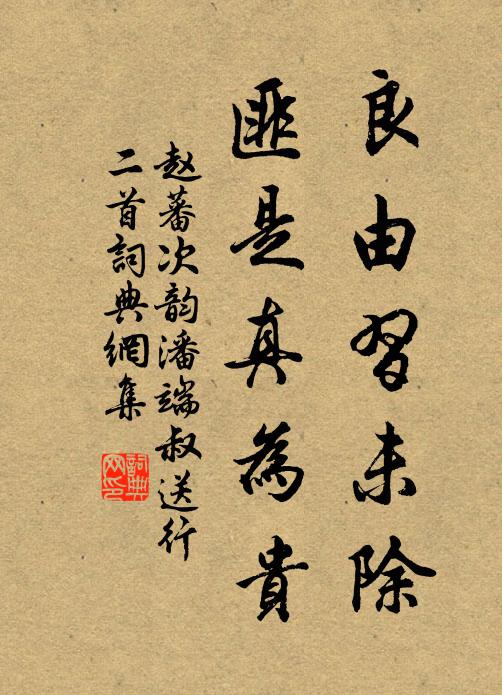 良由習未除
匪是真為貴
赵蕃次韵潘端叔送行
二首詞典網集
詞典网印